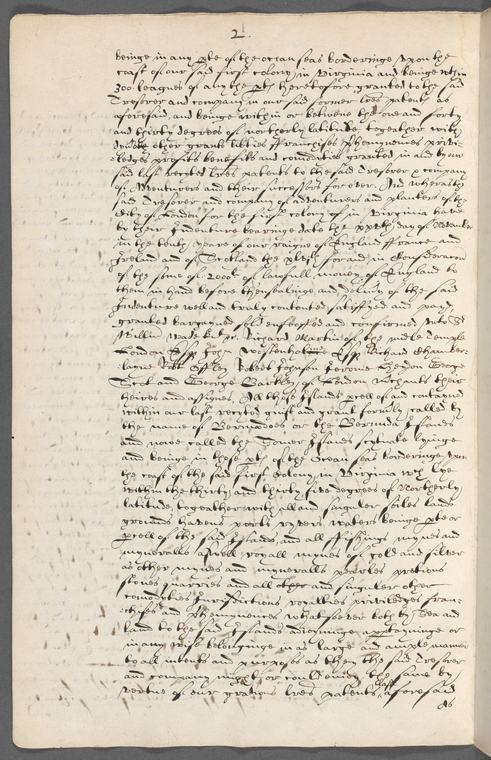 2.
beinge in any pte of the ocean seas borderinge upon the
coast of our said first colony in Virginia and beinge wthin
300 leagues of any the pts heretofore granted to the said
Tresorer and company in our said former lres patents as
aforesaid, and beinge within or betwene the one and forty
and thirty degrees of northerly latitude, together with
other grants liberties ffranchises preheminences privi-
ledges profitts benefitts and comodities granted in and by our
said last recyted lres patents to the said Tresorer & company
of Adventurers and their successors for ever. And wheras the
said Tresorer and company of adventurers and planters of the
City of London for the first colony in Virginia have
by their Indenture bearinge date the day of
in the tenth yeare of our raigne of England ffrance and
Ireland and of Scotland the xlvjth for and in consideracon
of the some of 2000li of lawfull money of England to
them in hand before thensealinge and delivry of the said
Indenture well and truly contented satisfyed and payd
granted bargayned sold enfeoffed and confirmed unto Sr
Willm Wade kt Richard Martin of the midle Temple
London Esqr John Wostenholme Esqr Richard Chamber-
layne Robert Johnson George
Scot and George Barkley of London mchants their
heires and assignes, All those Islands pcell of and contayned
within our last recyted guift and grant formerly called by
the name of Bermudoes or the Bermuda Islands
and nowe called the Somer Islands scytuate lyinge
and beinge in those pts of the Ocean seas borderinge upon
the coast of the said First Colony in Virginia wch lye
within the thirty and thirty five degrees of Northerly
latitude, together with all and singuler soiles lands
grounds havens ports ryvers waters beinge pte or
pcell of the said Islands, and all ffishings mynes and
mynerals aswell royall mynes of gold and silver
as other mynes and mynerals pearles pretious
stones quarries and all other and singuler other
comodities Jurisdictions royalties priviledges fran-
chises and preheminences whatsoever both by Sea and
land to the said Islands adioyninge apptayninge or
in any wise belonginge in as large and ample manner
to all intents and purposes as they the said Tresorer
and company might or could enioy the same by
vertue of our gratious lres patents last aforesaid
As